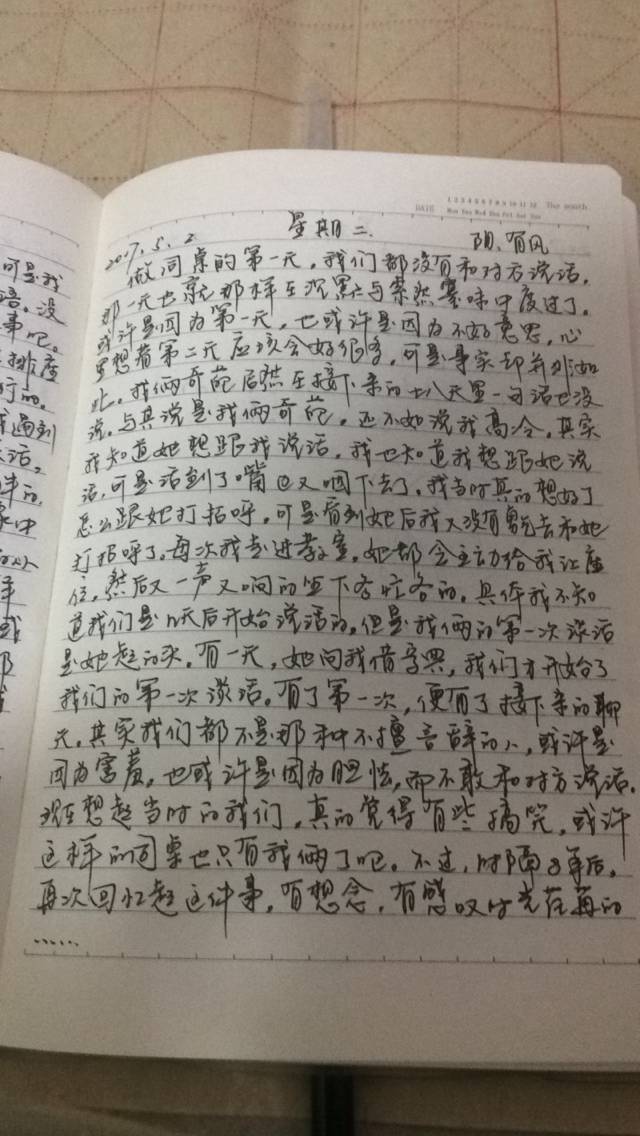 可是我
没
事吧。
DATE 1 2 3 4 5 6 7 8 9 10 11 12 The month
Mon Tue Wed Thu Fri Sat Sun
2017.5.2 星期二. 阴.有风
做同桌的第一天，我们都没有和对方说话，
那一天也就那样在沉默与索然寡味中度过了。
或许是因为第一天，也或许是因为不好意思，心
里想着第二天应该会好很多，可是事实却并非如
此。我俩奇葩居然在接下来的十八天里一句话也没
说，与其说是我俩奇葩，还不如说我高冷。其实
我知道她想跟我说话，我也知道我想跟她说
话，可是话到了嘴边又咽下去了。我当时真的想好了
怎么跟她打招呼，可是看到她后我又没有勇气去和她
打招呼了。每次我走进教室，她都会主动给我让座
位，然后又一声又响的坐下各忙各的。具体我不知
道我们是几天后开始说话的，但是我俩的第一次谈话
是她起的头，有一天，她问我借字典，我们才开始了
我们的第一次谈话。有了第一次，便有了接下来的聊
天。其实我们都不是那种不擅言辞的人，或许是
因为害羞，也或许是因为胆怯，而不敢和对方说话。
现在想起当时的我们，真的觉得有些搞笑，或许
这样的同桌也只有我俩了吧。不过，时隔3年后，
再次回忆起这件事，有想念，有感叹时光荏苒的
......